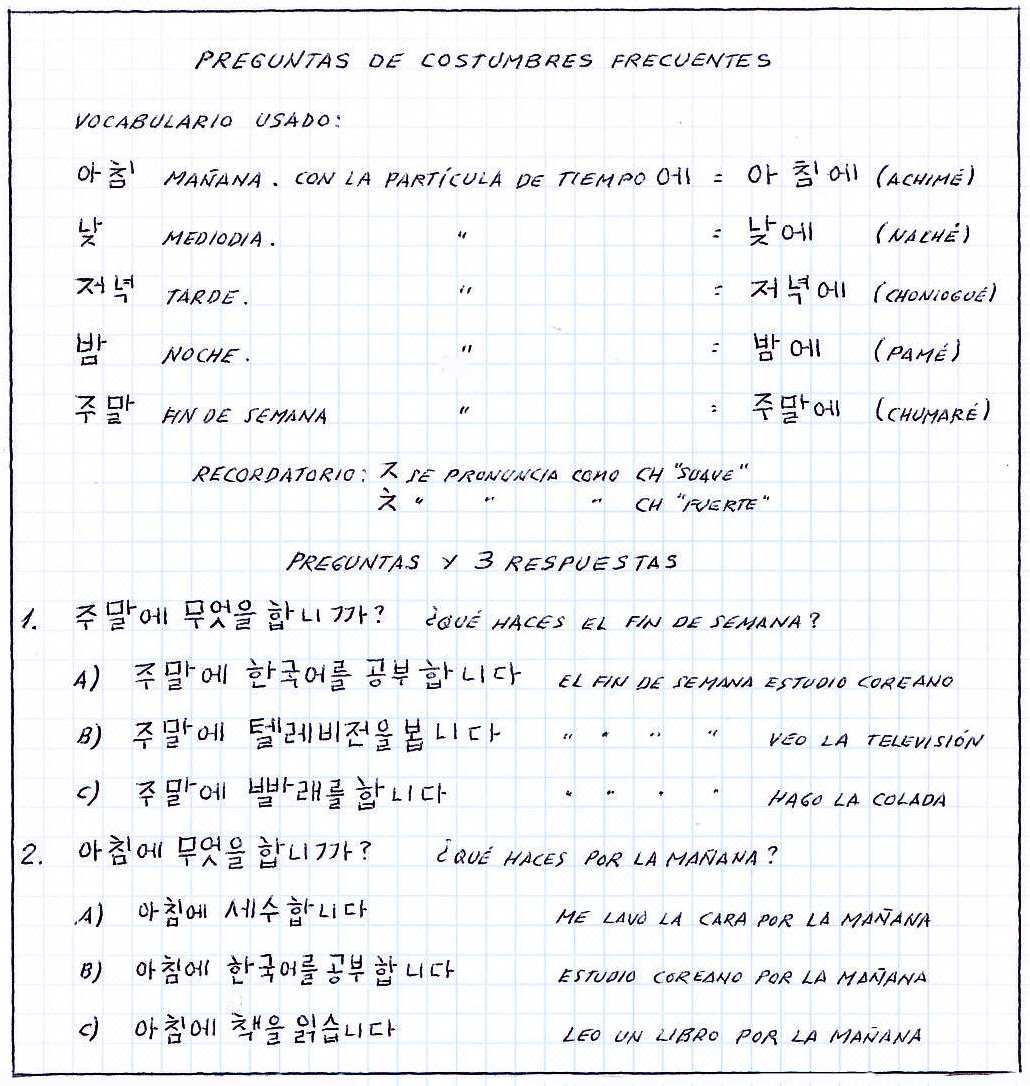 PREGUNTAS DE COSTUMBRES FRECUENTES
VOCABULARIO USADO:
아침 MAÑANA. CON LA PARTÍCULA DE TIEMPO 에 = 아침에 (ACHIMÉ)
낮 MEDIODIA. " = 낮에 (NACHÉ)
저녁 TARDE. " = 저녁에 (CHONIOGUÉ)
밤 NOCHE. " = 밤에 (PAMÉ)
주말 FIN DE SEMANA " = 주말에 (CHUMARÉ)
RECORDATORIO: ㅈ SE PRONUNCIA COMO CH "SUAVE"
ㅊ " " " CH "FUERTE"
PREGUNTAS Y 3 RESPUESTAS
1. 주말에 무엇을 합니까? ¿QUÉ HACES EL FIN DE SEMANA?
A) 주말에 한국어를 공부합니다 EL FIN DE SEMANA ESTUDIO COREANO
B) 주말에 텔레비전을 봅니다 " " " " VEO LA TELEVISIÓN
C) 주말에 빨래를 합니다 " " " " HAGO LA COLADA
2. 아침에 무엇을 합니까? ¿QUÉ HACES POR LA MAÑANA?
A) 아침에 세수합니다 ME LAVO LA CARA POR LA MAÑANA
B) 아침에 한국어를 공부합니다 ESTUDIO COREANO POR LA MAÑANA
C) 아침에 책을 읽습니다 LEO UN LIBRO POR LA MAÑANA